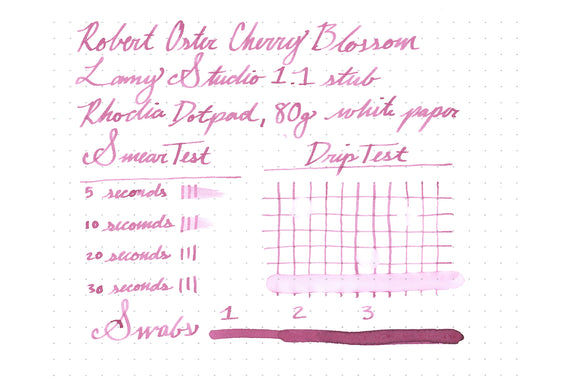 Robert Oster Cherry Blossom
Lamy Studio 1.1 stub
Rhodia Dotpad, 80g white paper
Smear Test
Drip Test
5 seconds
10 seconds
20 seconds
30 seconds
Swabs 1 2 3